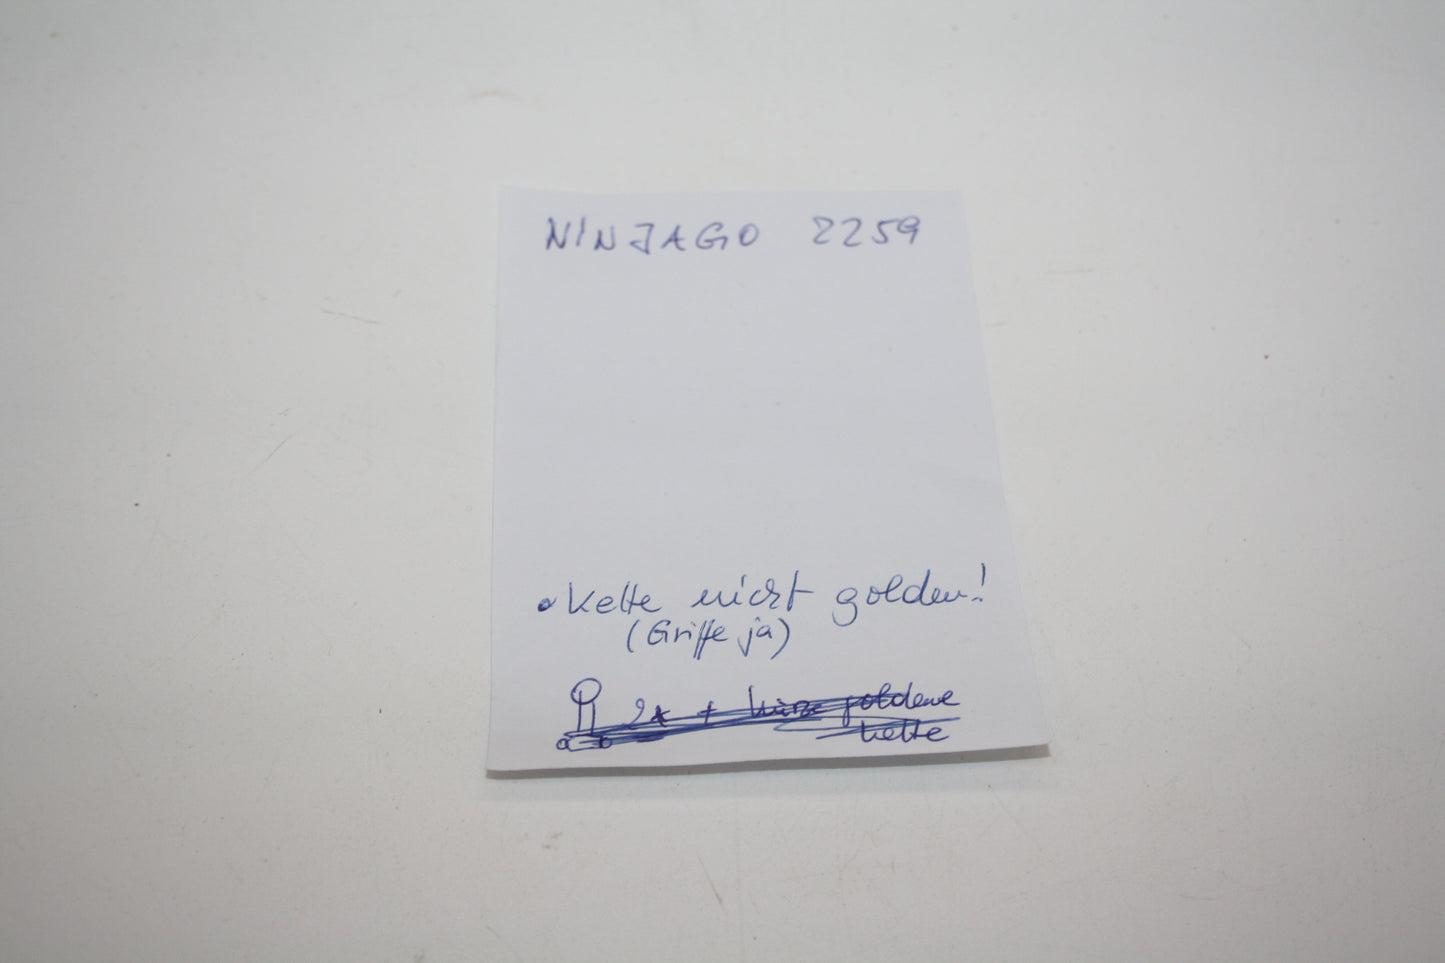 NINJAGO 2259
• Kette nicht golden!
(Griffe ja)
2x + kurze goldene
Kette